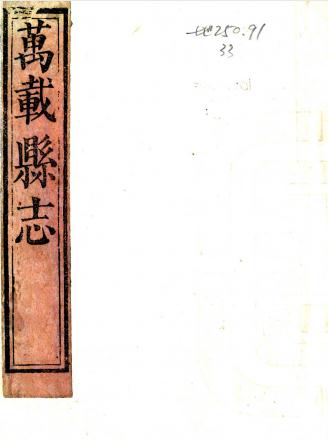 萬載縣志
地250.91
33